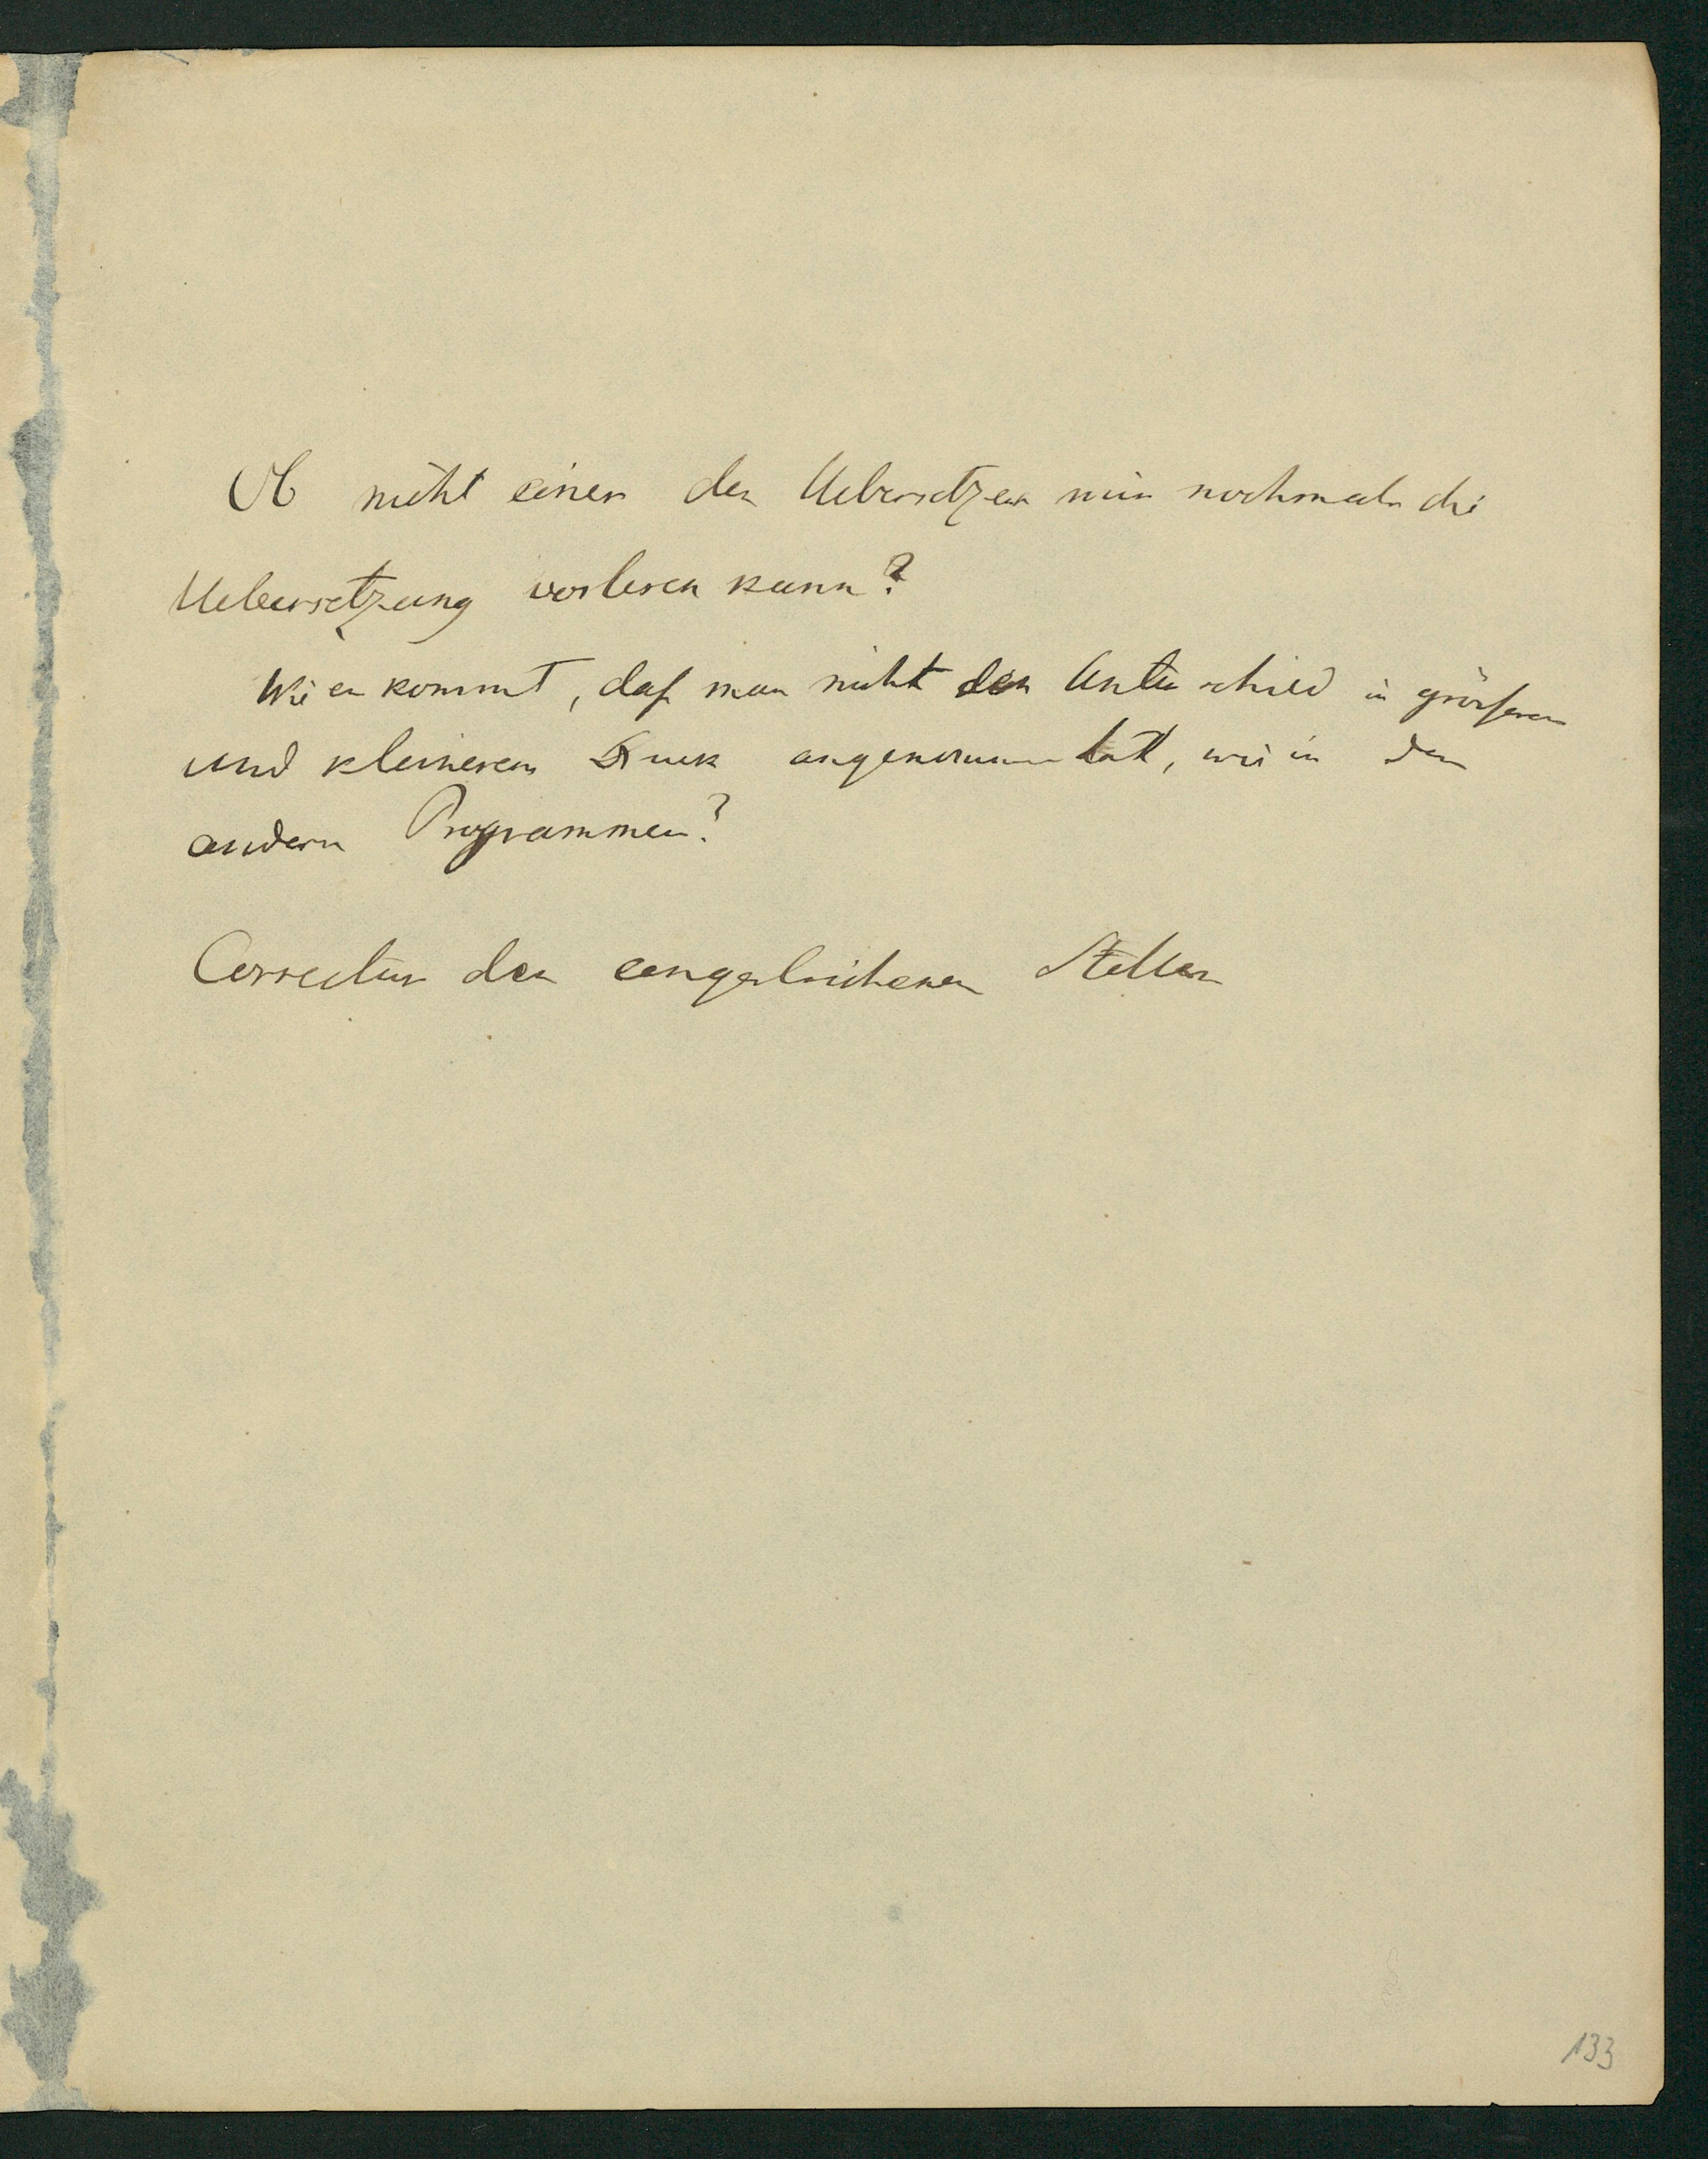 Ob nicht einer der Uebersetzer mir nochmals die
Uebersetzung vorlesen kann?
Wie es kommt, daß man nicht den Unterschied in größeren
und kleineren Druck angenommen hat, wie in den
andern Programmen?
Correctur der eingestrichenen Stellen
133